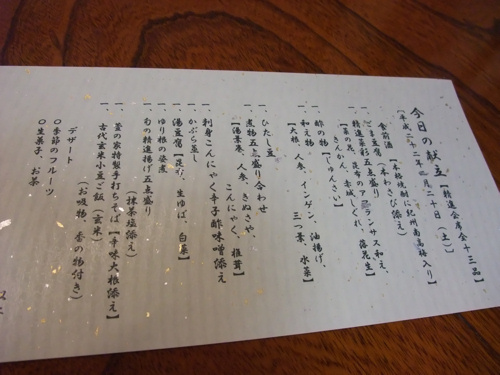 今日の献立【精進会席全十三品】
【平成二十二年二月二十日(土)】
食前酒【本格焼酎に紀州南高梅入り】
一、ごま豆腐【本わさび添え】
一、精進菜彩五点盛り
きんかん、赤城しぐれ、落花生】
一、酢の物【じゅんさい】
一、和え物
【大根、人参、インゲン、油揚げ、
三つ葉、水菜】
一、ひたし豆
一、煮物五点盛り合わせ
【湯葉巻、人参、きぬさや、
こんにゃく、椎茸】
一、刺身こんにゃく辛子酢味噌添え
一、かぶら蒸し
一、湯豆腐【昆布、生ゆば、白菜】
一、ゆり根の姿煮
一、旬の精進揚げ五点盛り
(抹茶塩添え)
一、釜の家特製手打ちそば【辛味大根添え】
一、古代玄米小豆ご飯(玄米)
(お吸物、香の物付き)
デザート
○季節のフルーツ
○生菓子、お茶